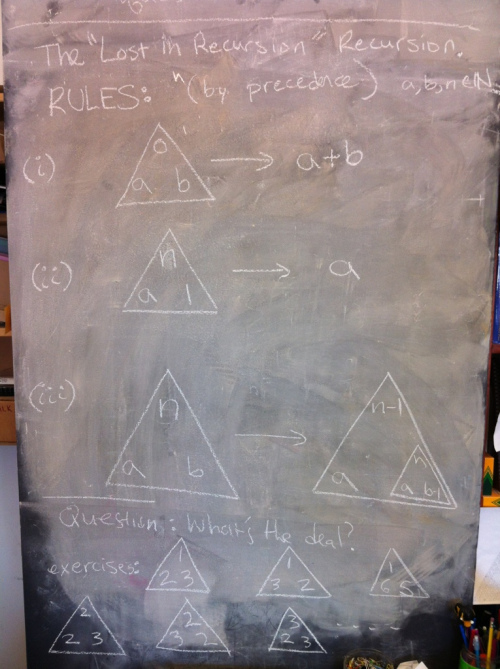 The "Lost in Recursion" Recursion.
RULES: (by precedence) a,b,n∈N
(i) 0 a b → a+b
(ii) n a 1 → a
(iii) n a b → n-1 a n a b-1
Question: What's the deal?
exercises: 1 2 3 1 3 2 1 6 5
2 2 3 2 3 2 3 2 3 - - - -